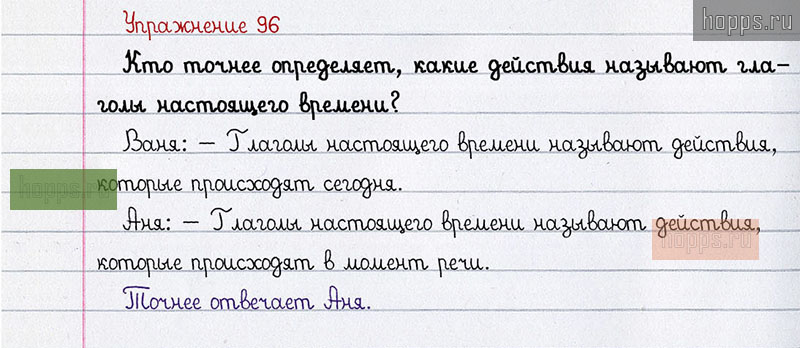 hopps.ru
Упражнение 96
Кто точнее определяет, какие действия называют гла-
голы настоящего времени?
Ваня: – Глаголы настоящего времени называют действия,
hopps.ru
которые происходят сегодня.
Аня: – Глаголы настоящего времени называют действия,
hopps.ru
которые происходят в момент речи.
Точнее отвечает Аня.